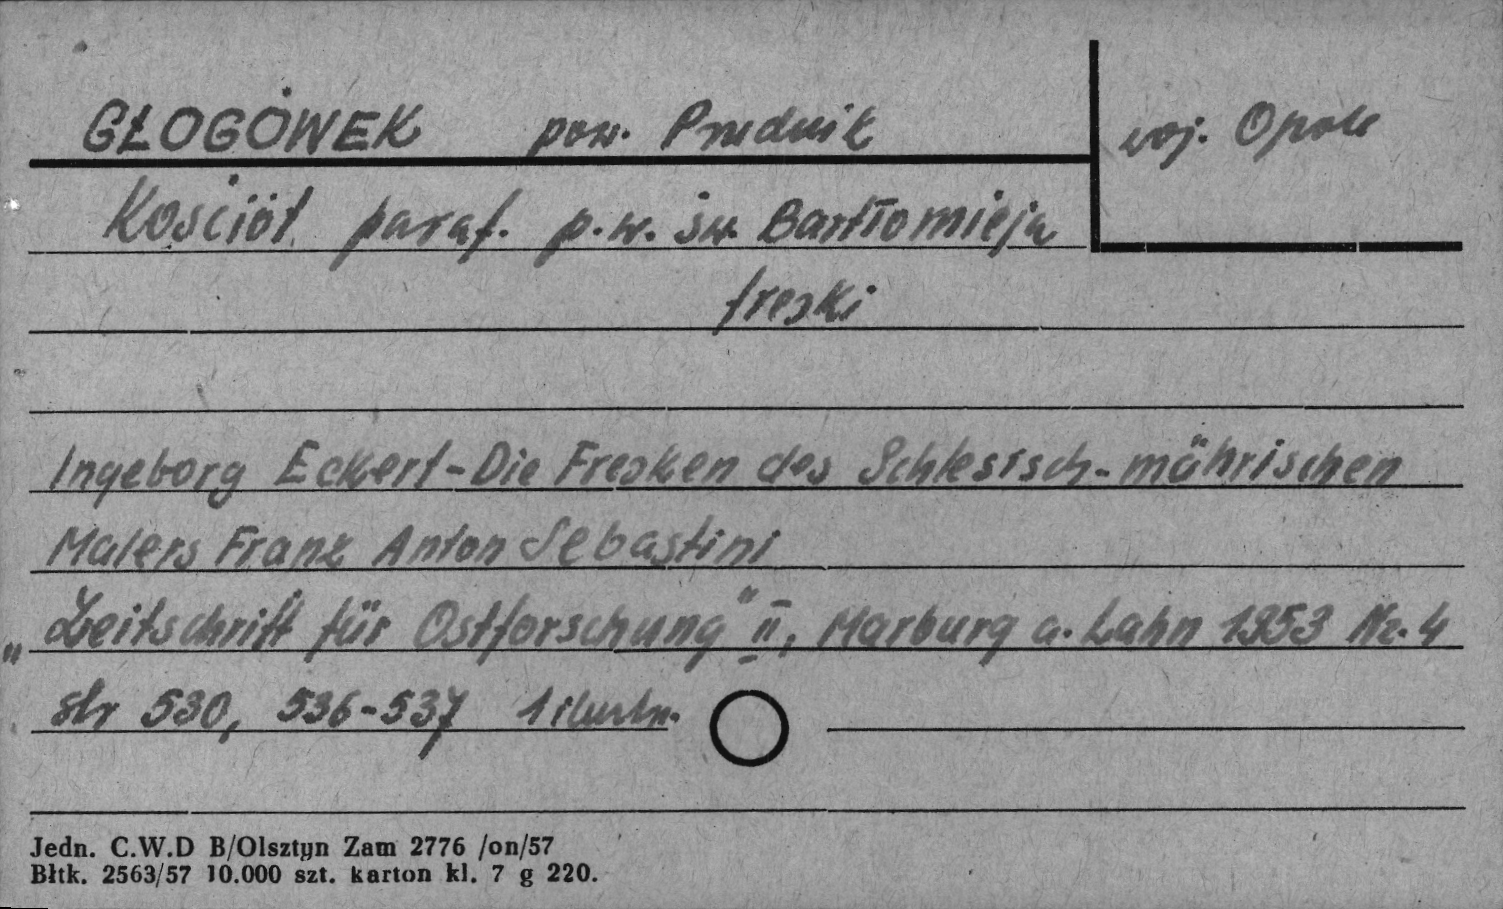 GŁOGÓWEK pow. Prudnik woj. Opole
Kościół paraf. p.w. św. Bartłomieja
freski
Ingeborg Eckert - Die Fresken des Schlesisch-mährischen
Malers Franz Anton Sebastini
„Zeitschrift für Ostforschung" II, Marburg a. Lahn 1953 Nr. 4
str 530, 536-537 1 ilustr.
Jedn. C.W.D B/Olsztyn Zam 2776 /on/57
Błtk. 2563/57 10.000 szt. karton kl. 7 g 220.